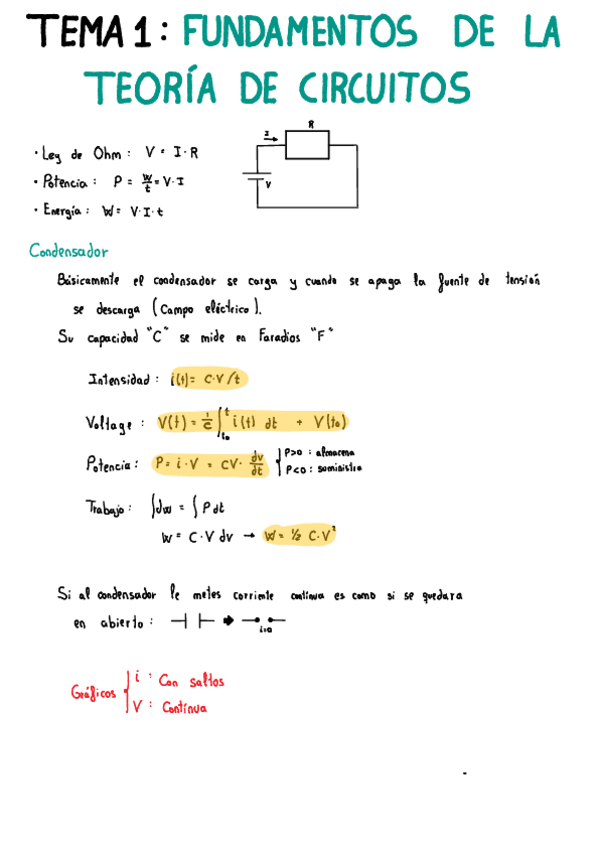 TEMA 1: FUNDAMENTOS DE LA
TEORÍA DE CIRCUITOS
· Ley de Ohm: V = I·R
· Potencia: P = W/t = V·I
· Energía: W = V·I·t
I
R
V
Condensador
Básicamente el condensador se carga y cuando se apaga la fuente de tensión
se descarga (Campo eléctrico).
Su capacidad "C" se mide en Faradios "F"
Intensidad: i(t) = C·V/t
Voltage: V(t) = 1/C ∫_{t₀}^{t} i(t) dt + V(t₀)
Potencia: P = i·V = CV· dv/dt { P>0: almacena
P<0: suministra
Trabajo: ∫dw = ∫P dt
W = C·V dv → W = ½ C·V²
Si al condensador le metes corriente continua es como si se quedara
en abierto:
i=0
Gráficos { i: Con saltos
V: Contínua